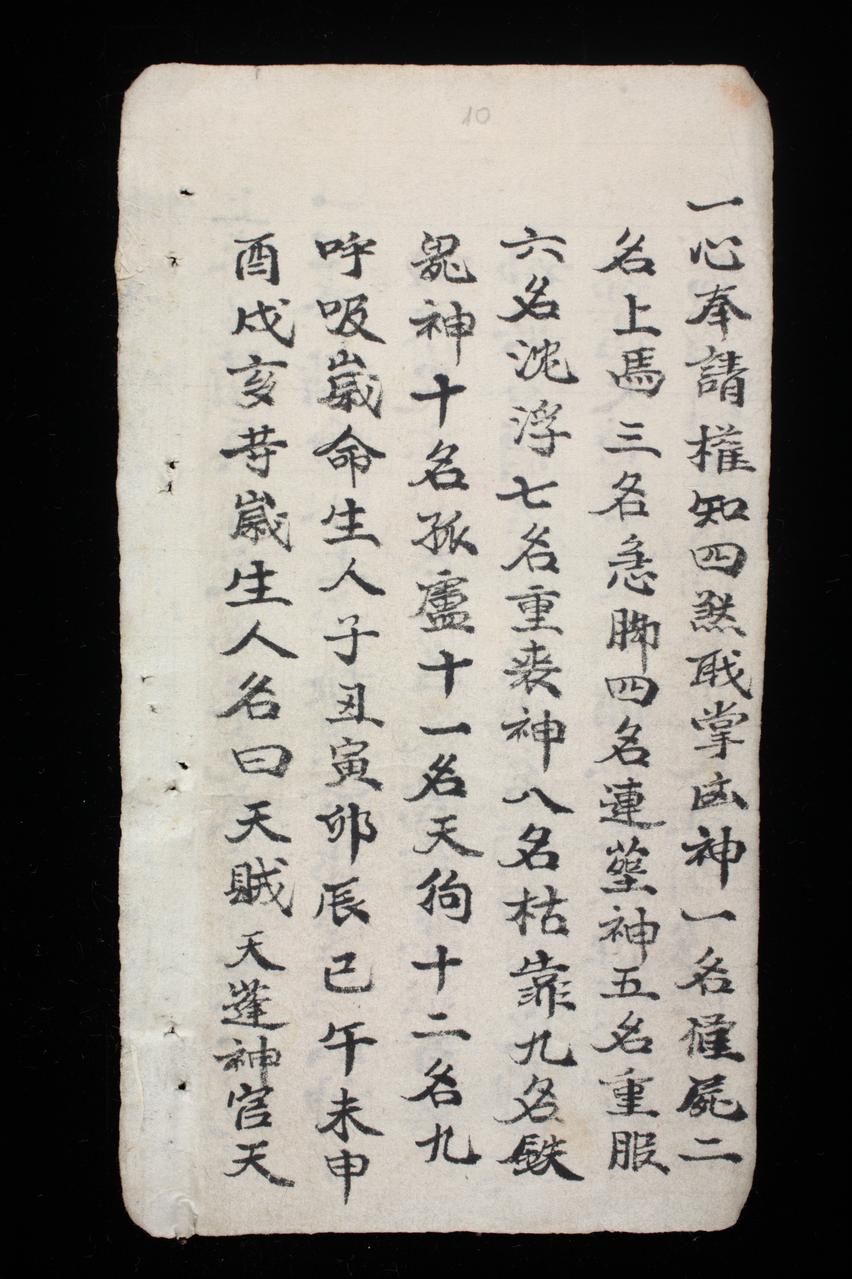 10
一心奉請權知四煞職掌凶神一名僵屍二
名上馬三名急脚四名連塋神五名重服
六名沈浮七名重喪神八名枯靠九名鉄
鬼神十名孤盧十一名天狗十二名九
呼吸歲命生人子丑寅卯辰巳午未申
酉戌亥等歲生人名曰天賊天蓬神官天